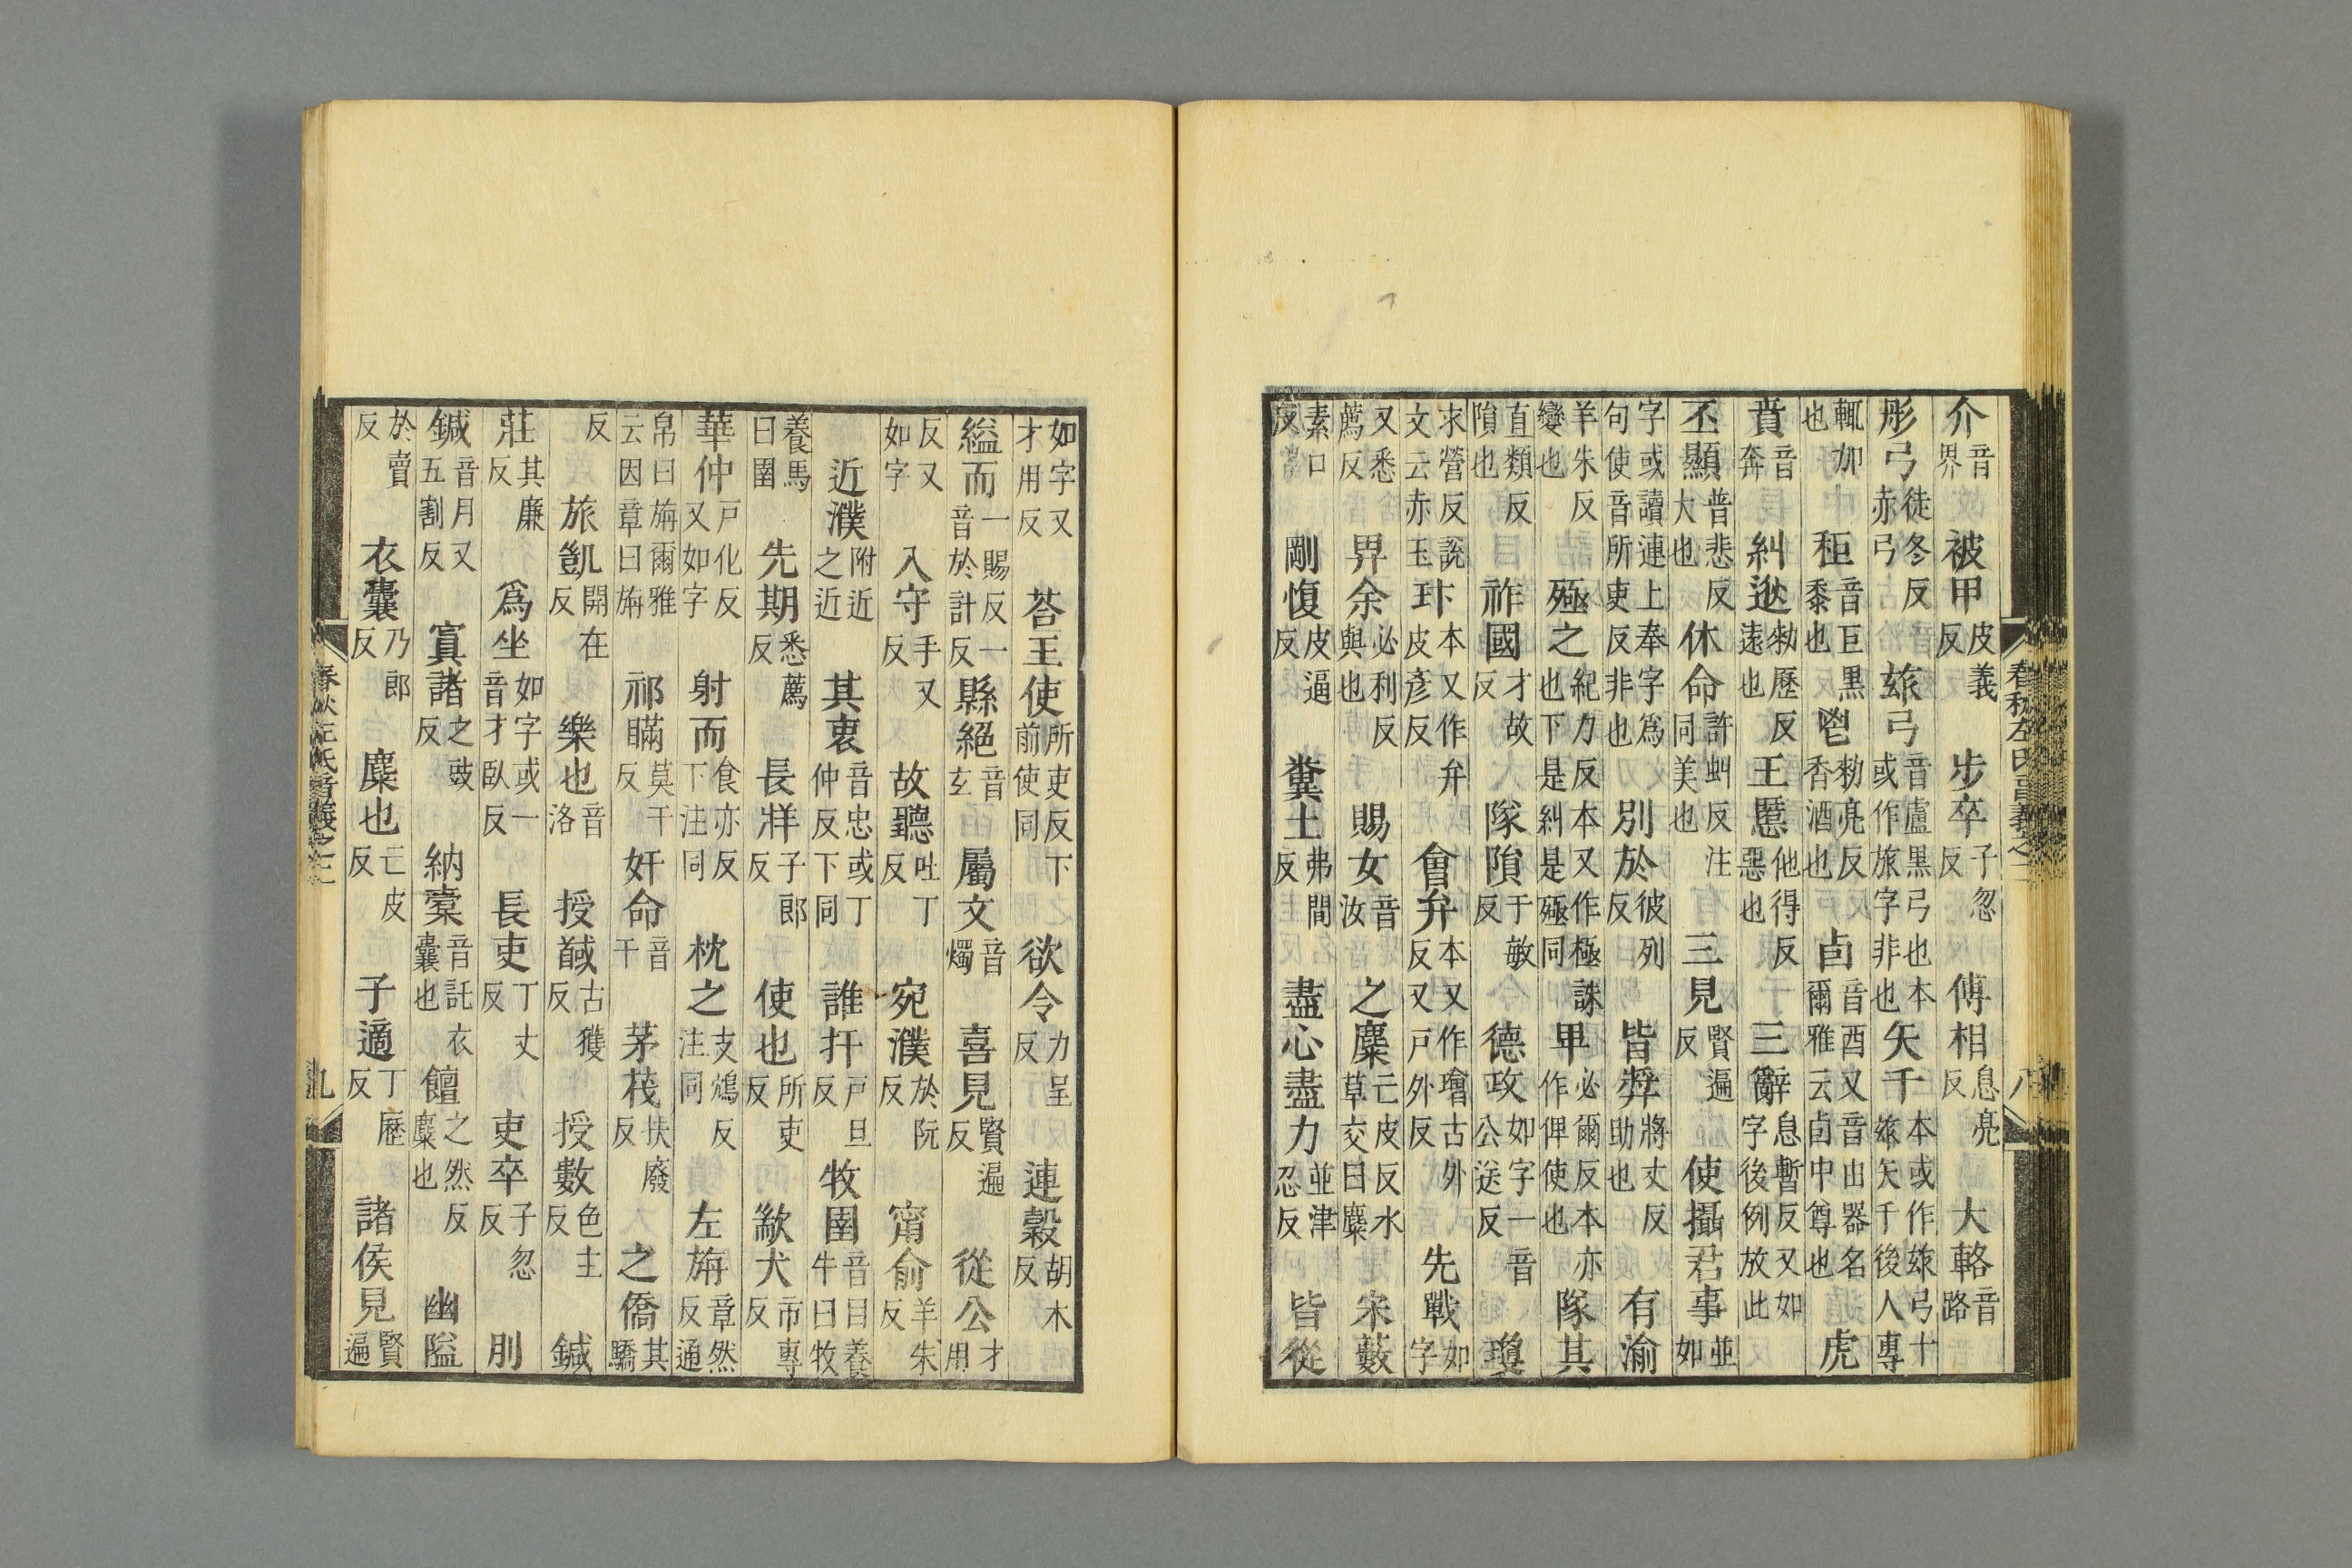 介音界 被甲皮義反 步卒子忽反 傅相息亮反 大輅音路
彤弓徒冬反赤弓 玈弓音盧黑弓也本或作旅字非也 矢千本或作玈弓十玈矢千後人專
輒加也 秬音巨黑黍也 鬯勑亮反香酒也 卣音酉又音由器名爾雅云卣中尊也 虎
賁音奔 糾逖勑歷反遠也 王慝他得反惡也 三辭息暫反又如字後例放此
丕顯普悲反大也 休命許虯反注同美也 三見賢遍反 使攝君事並如
字或讀連上奉字爲句使音所吏反非也 別於彼列反 皆奬將丈反助也 有渝
羊朱反變也 殛之紀力反本又作極誅也下是糾是殛同 卑必爾反本亦作俾使也 隊其
直類反隕也 祚國才故反 隊隕于敏反 德攻如字一音公送反 瓊
求營反說文云赤玉 玤本又作弁皮彥反 會弁本又作璯古外反又戶外反 先戰如字
又悉薦反 畀余必利反與也 賜女音汝 之麋亡皮反水草交曰麋 宋藪
素口反 剛愎皮逼反 糞土弗間反 盡心盡力並津忍反 皆從
春秋左氏音義之二 八
如字又才用反 荅王使所吏反下前使同 欲令力呈反 連穀胡木反
縊而一賜反一音於計反 縣絕音玄 屬文音燭 喜見賢遍反 從公才用
反又如字 入守手又反 故聽吐丁反 宛濮於阮反 甯俞羊朱反
近濮附近之近 其衷音忠或丁仲反下同 誰扞戶旦反 牧圉音目養牛曰牧
養馬曰圉 先期悉薦反 長牂子郎反 使也所吏反 歂犬市專反
華仲戶化反又如字 射而食亦反下注同 枕之支鴆反注同 左旃章然反通
帛曰旃爾雅云因章曰旃 祁瞞莫干反 奸命音干 茅茷扶廢反 之僑其驕
反 旅凱開在反 樂也音洛 授馘古獲反 授數色主反 鍼
莊其廉反 爲坐如字或一音才臥反 長吏丁丈反 吏卒子忽反 刖
鍼音月又五割反 寘諸之豉反 納橐音託衣囊也 饘之然反糜也 幽隘
於賣反 衣囊乃郎反 糜也亡皮反 子適丁歷反 諸侯見賢遍
春秋左氏音義之二 九